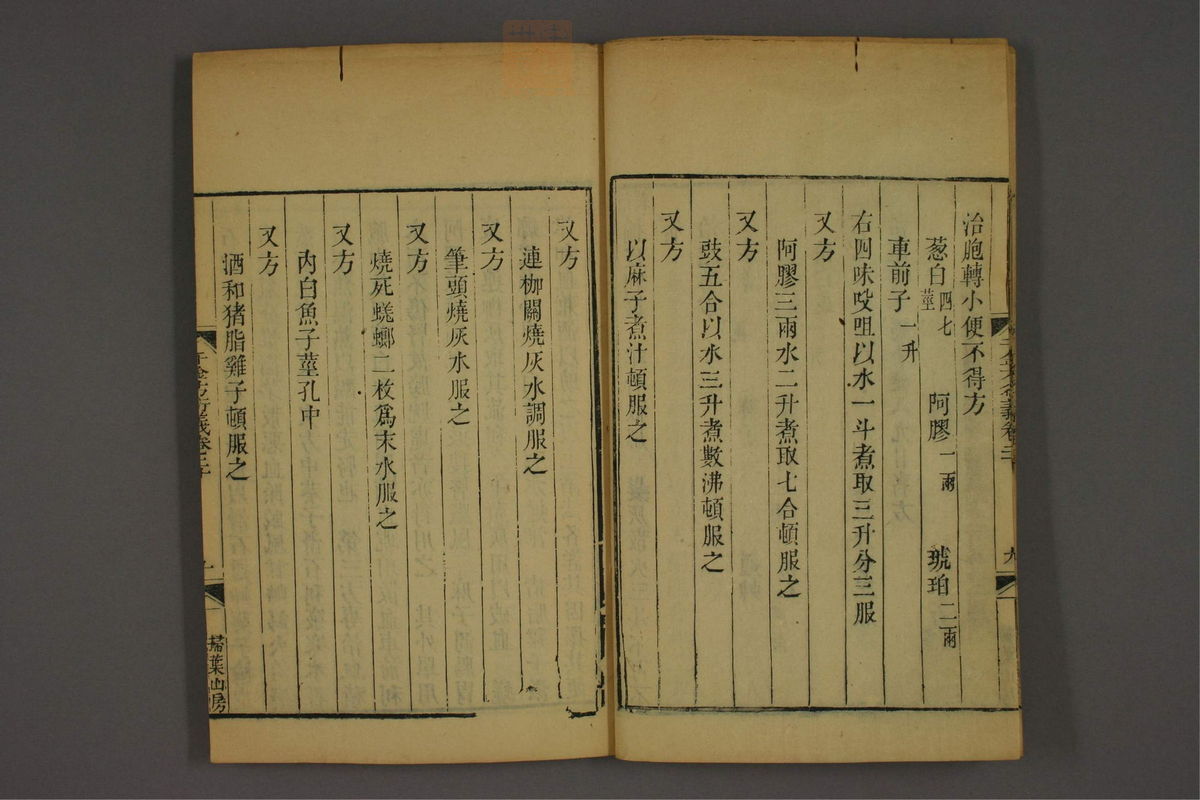 治胞轉小便不得方
葱白四七莖 阿膠一兩 琥珀二兩
車前子一升
右四味㕮咀以水一斗煮取三升分三服
又方
阿膠三兩水二升煮取七合頓服之
又方
豉五合以水三升煮數沸頓服之
又方
以麻子煮汁頓服之
又方
連枷關燒灰水調服之
又方
筆頭燒灰水服之
又方
燒死蜣螂二枚爲末水服之
又方
內白魚子莖孔中
又方
酒和猪脂雞子頓服之
千金方衍義卷二十
掃葉山房